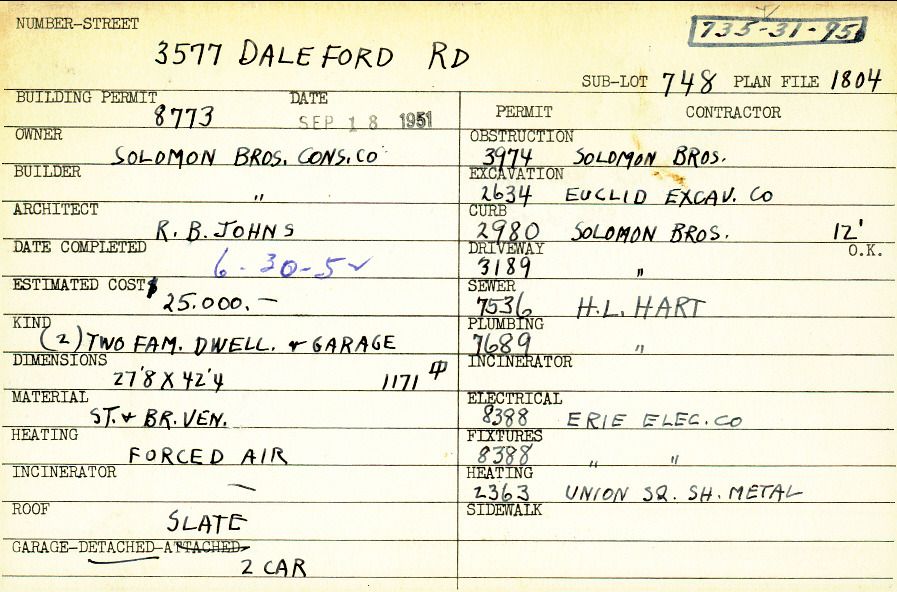 NUMBER-STREET
735-31-95
3577 DALEFORD RD
SUB-LOT 748 PLAN FILE 1804
BUILDING PERMIT DATE
8773 SEP 18 1951
OWNER
SOLOMON BROS. CONS. CO
BUILDER
"
ARCHITECT
R. B. JOHNS
DATE COMPLETED
6-30-5
ESTIMATED COST $
25.000.—
KIND
(2) TWO FAM. DWELL. & GARAGE
DIMENSIONS
27'8 X 42'4 1171
MATERIAL
ST. & BR. VEN.
HEATING
FORCED AIR
INCINERATOR
—
ROOF
SLATE
GARAGE-DETACHED-ATTACHED-
2 CAR
PERMIT CONTRACTOR
OBSTRUCTION
3974 SOLOMON BROS.
EXCAVATION
2634 EUCLID EXCAV. CO
CURB
2980 SOLOMON BROS. 12'
DRIVEWAY O.K.
3189 "
SEWER
7536 H.L. HART
PLUMBING
7689 "
INCINERATOR
ELECTRICAL
8388 ERIE ELEC. CO
FIXTURES
8388 " "
HEATING
2363 UNION SQ. SH. METAL
SIDEWALK